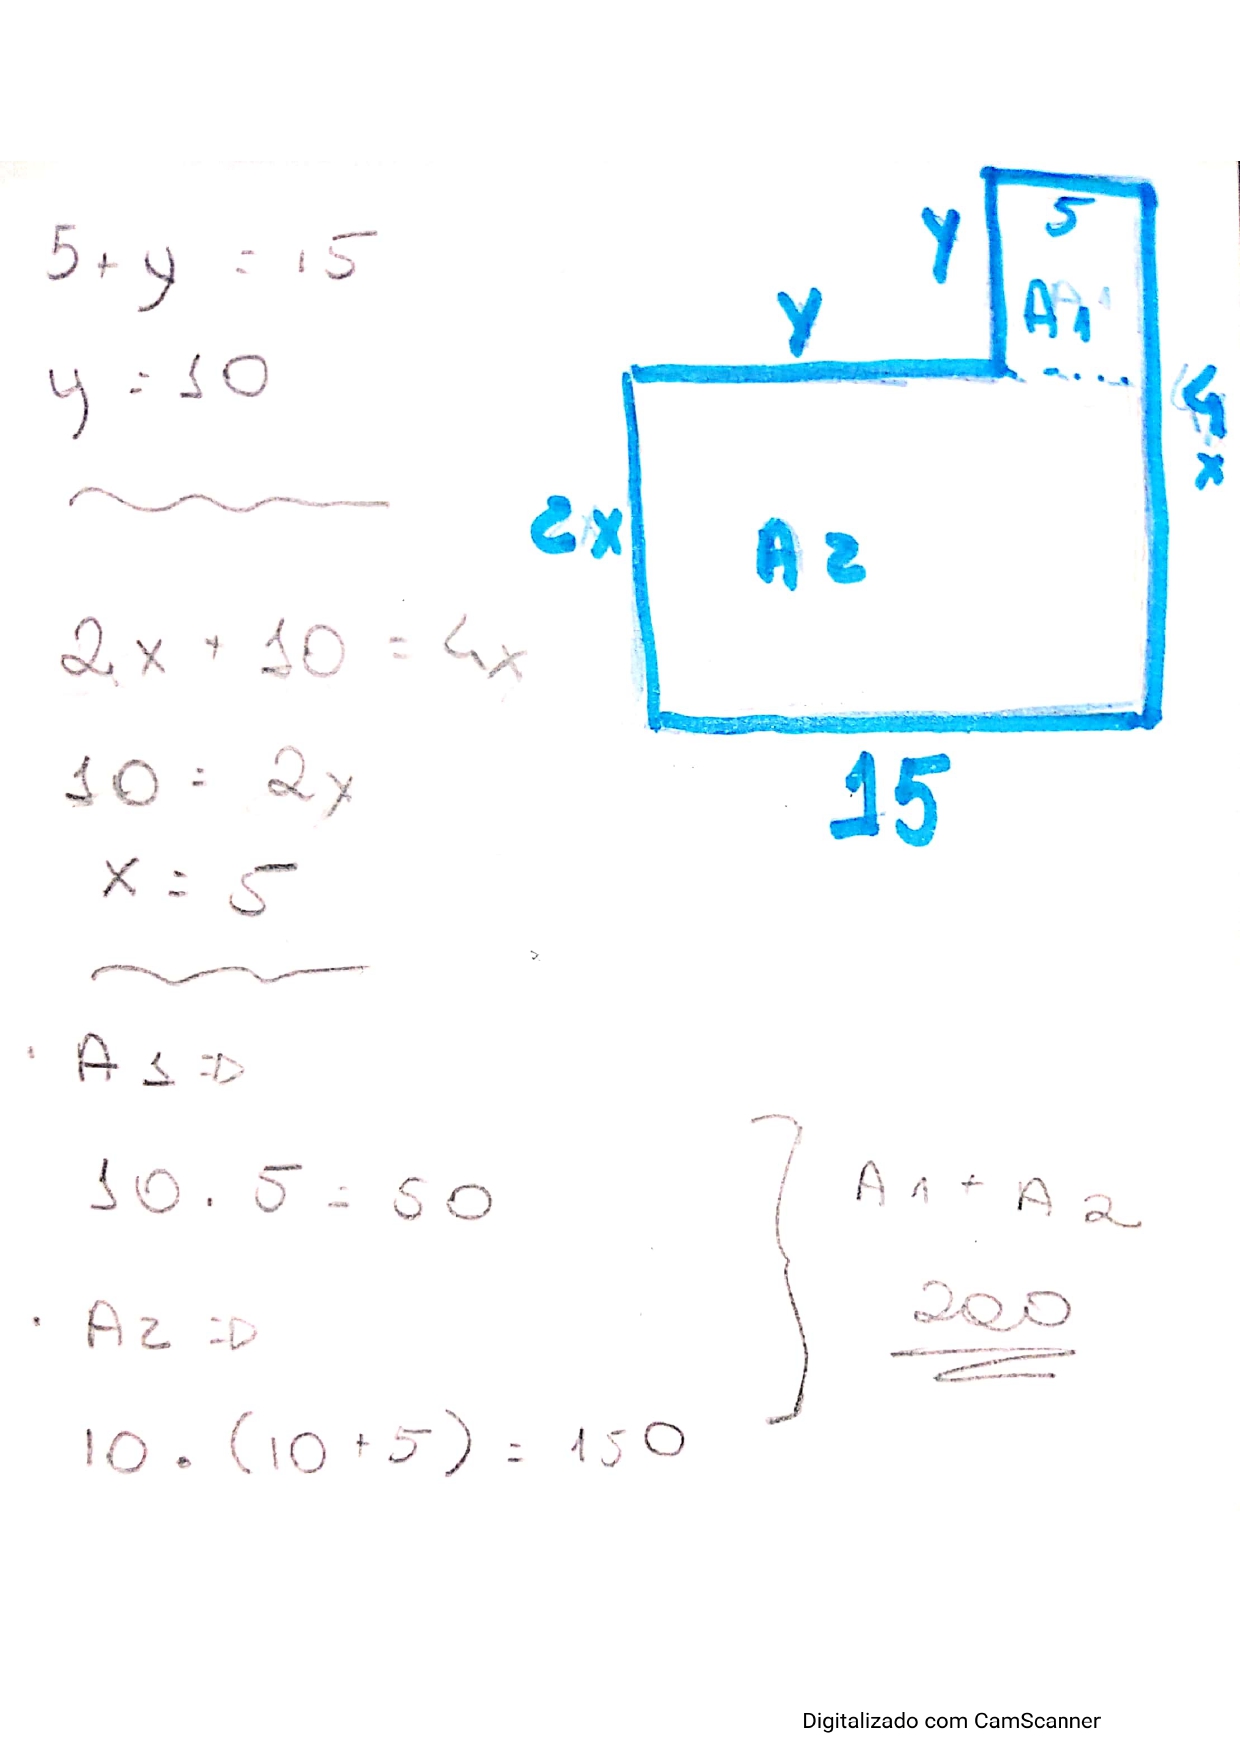 5 + y = 15
y = 10
2x + 10 = 4x
10 = 2x
x = 5
• A1 ⇒
10 . 5 = 50
• A2 ⇒
10 . (10 + 5) = 150
A1 + A2
200
5
y
A1
y
4x
2x
A2
15
Digitalizado com CamScanner